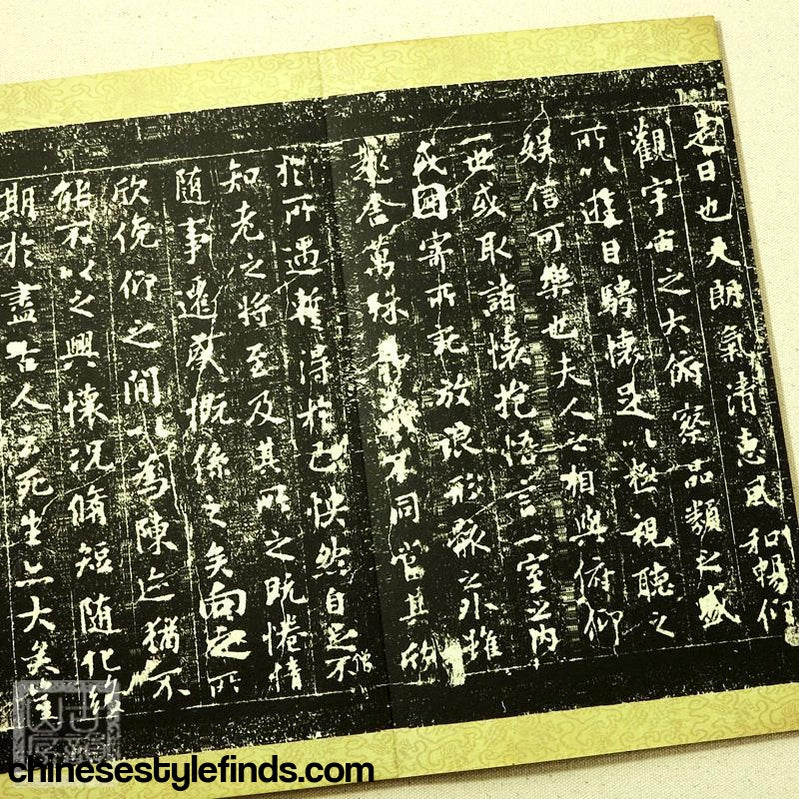 是日也天朗氣清惠風和暢仰
觀宇宙之大俯察品類之盛
所以遊目騁懷足以極視聽之
娛信可樂也夫人之相與俯仰
一世或取諸懷抱悟言一室之內
或因寄所託放浪形骸之外雖
趣舍萬殊靜不同當其欣
於所遇蹔得於己快然自足不
僧
知老之將至及其所之既惓情
隨事遷感慨係之矣向之所
欣俛仰之閒以為陳迹猶不
能不以之興懷況脩短隨化終
期於盡古人云死生亦大矣豈
chinesestylefinds.com